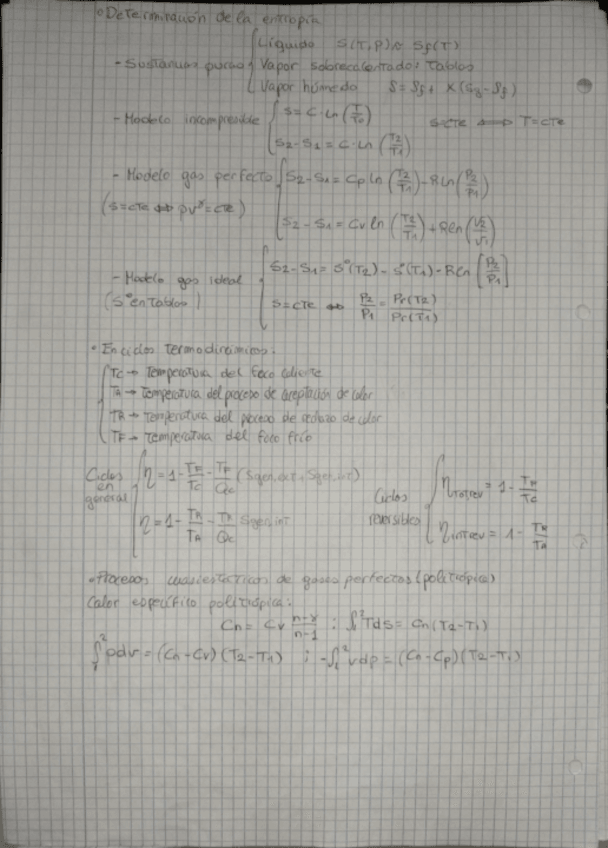 • Determinación de la entropía
Líquido S(T,P) ≈ Sf(T)
- Sustancias puras Vapor sobrecalentado: Tablas
Vapor húmedo S = Sf + X(Sg - Sf)
- Modelo incompresible S = C·Ln(T/T0) S=cte ⟺ T=cte
S2 - S1 = C·Ln(T2/T1)
- Modelo gas perfecto S2 - S1 = Cp ln(T2/T1) - R Ln(P2/P1)
(S=cte ⟺ pv^γ=cte)
S2 - S1 = Cv ln(T2/T1) + R Ln(V2/V1)
S2 - S1 = S°(T2) - S°(T1) - R Ln[P2/P1]
- Modelo gas ideal
(S° en Tablas) S=cte ⟺ P2/P1 = Pr(T2)/Pr(T1)
• En ciclos termodinámicos:
TC → Temperatura del foco caliente
TA → Temperatura del proceso de aceptación de calor
TR → Temperatura del proceso de rechazo de calor
TF → Temperatura del foco frío
Ciclos en general η = 1 - TF/TC - TF/QC (Sgen,ext + Sgen,int)
η = 1 - TR/TA - TR/QC Sgen,int
Ciclos reversibles ηtotrev = 1 - /TC
ηintrev = 1 - /TA
• Procesos cuasiestáticos de gases perfectos (politrópica)
Calor específico politrópica:
Cn = Cv (n-γ)/(n-1) ; ∫₁² Tds = Cn(T2-T1)
∫₁² pdv = (Cn-Cv)(T2-T1) ; -∫₁² vdp = (Cn-Cp)(T2-T1)